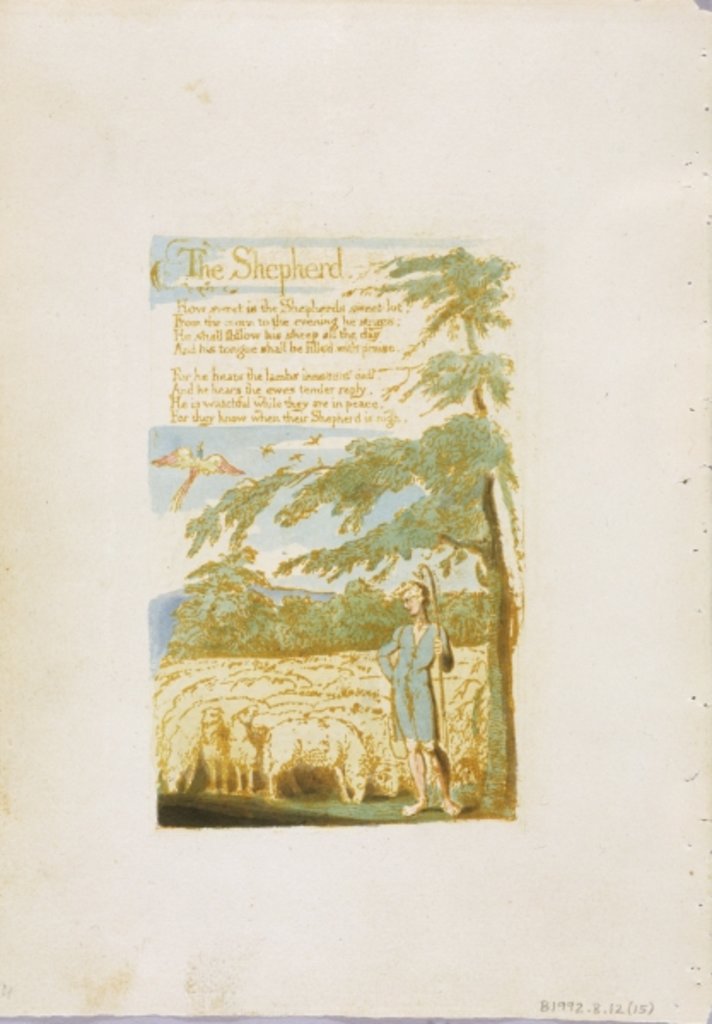 The Shepherd.
How sweet is the Shepherds sweet lot,
From the morn to the evening he strays:
He shall follow his sheep all the day
And his tongue shall be filled with praise.
For he hears the lambs innocent call,
And he hears the ewes tender reply,
He is watchful while they are in peace,
For they know when their Shepherd is nigh.
B1992.8.12(15)